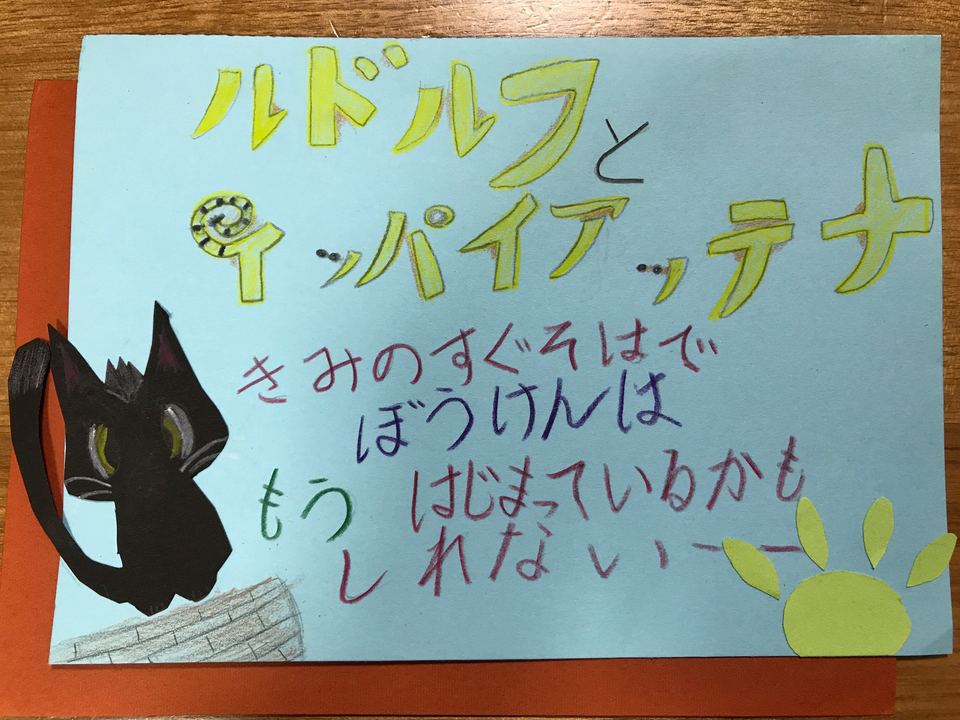 ルドルフと
イッパイアッテナ
きみのすぐそばで
ぼうけんは
もう はじまっているかも
しれない――